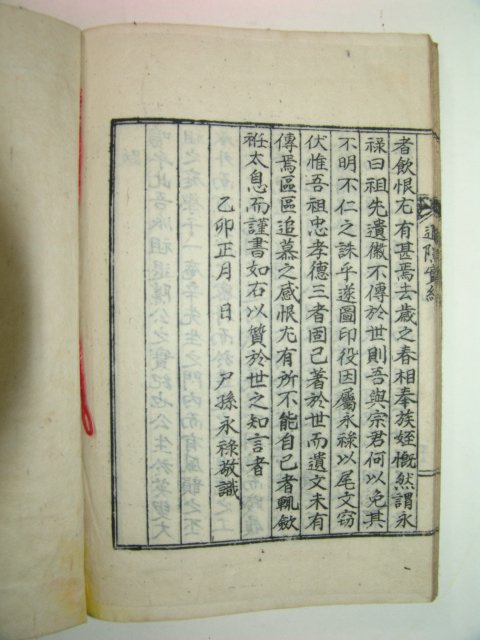 者飮恨尤有甚焉去歲之春相奉族姪慨然謂永
祿曰祖先遺徽不傳於世則吾與宗君何以免其
不明不仁之誅乎遂圖印役因屬永祿以尾文窃
伏惟吾祖忠孝德三者固已著於世而遺文未有
傳焉區區追慕之感恨尤有所不能自已者輒斂
衽太息而謹書如右以質於世之知言者
乙卯正月 日 尸孫永祿敬識